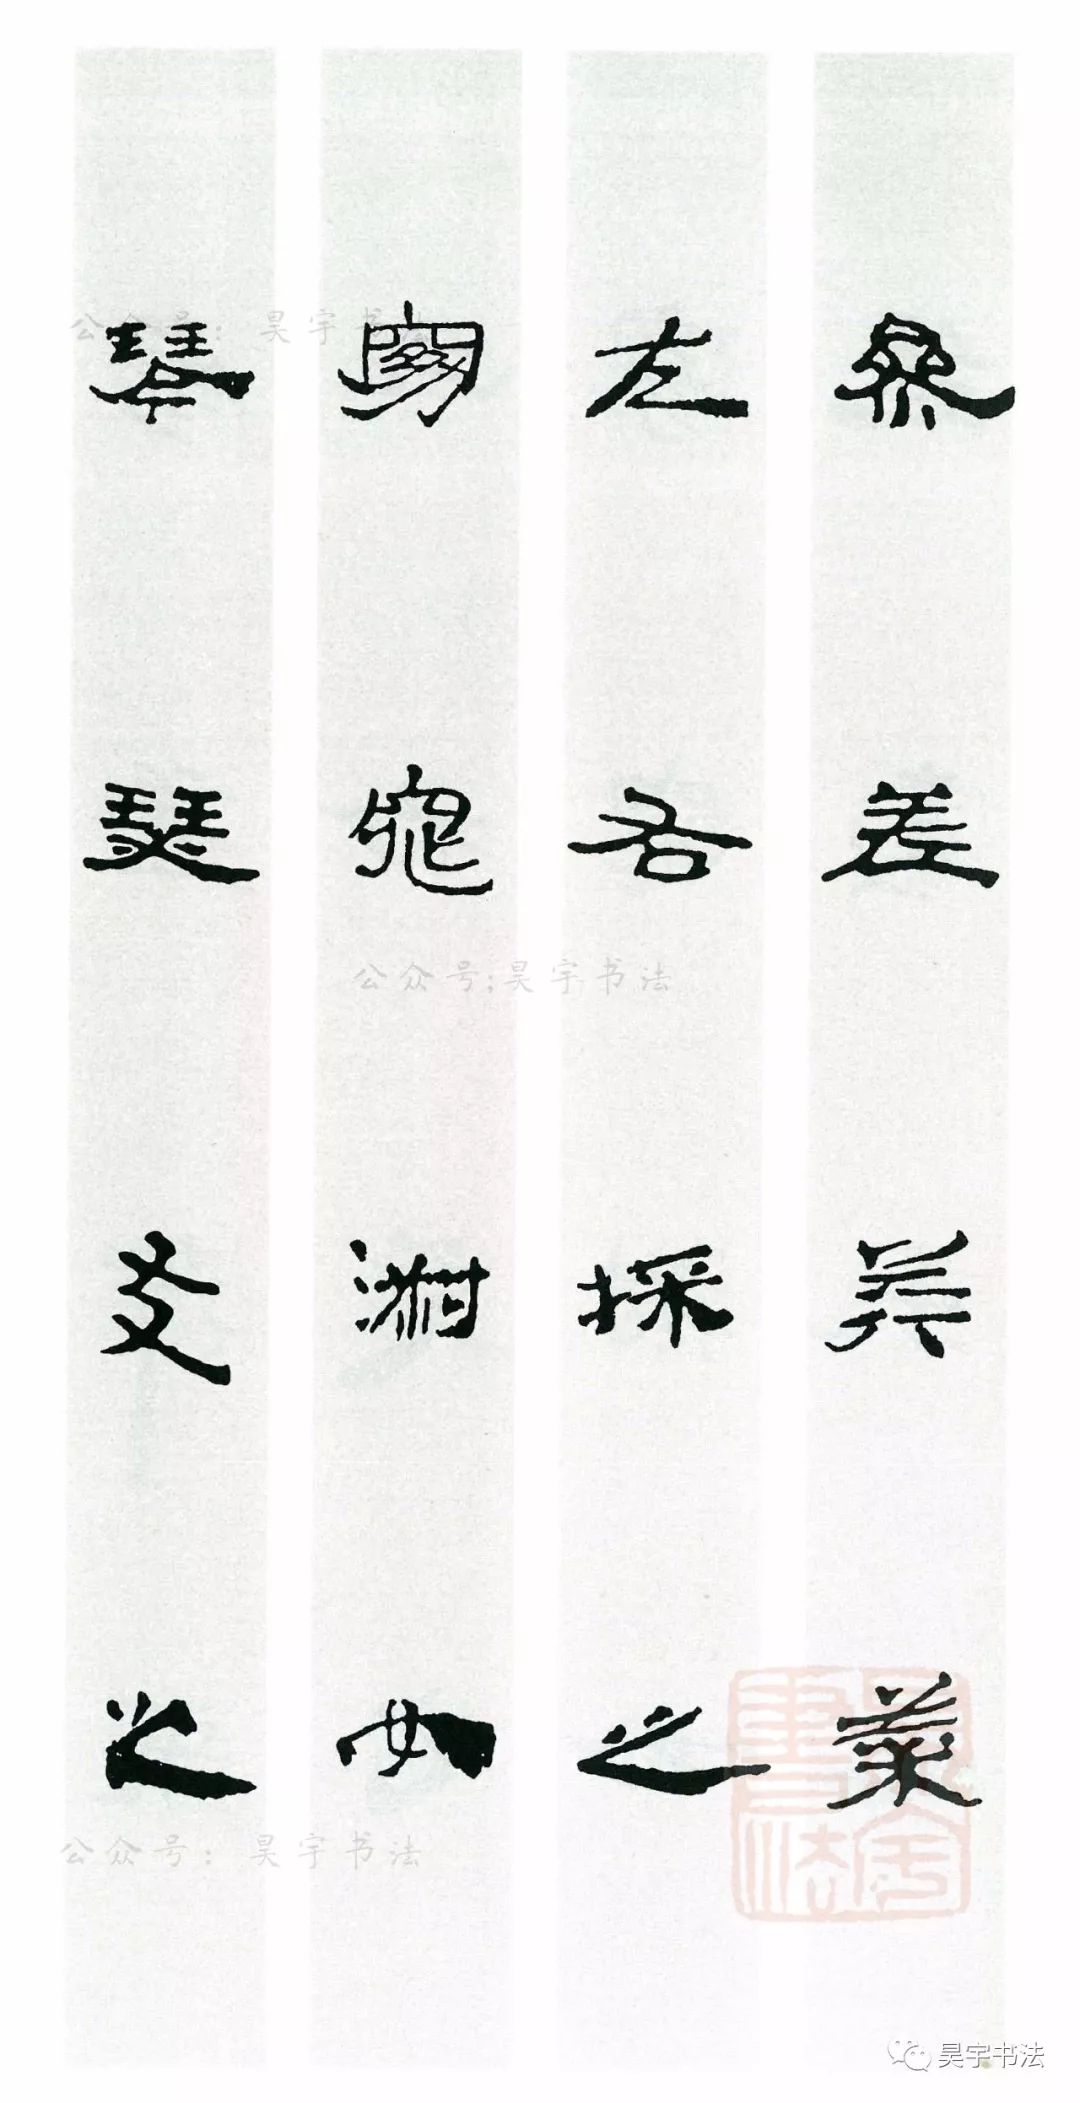 参差荇菜
左右採之
窈窕淑女
琴瑟友之
公众号：昊宇书法
公众号：昊宇书法
公众号：昊宇书法
昊宇书法
昊宇书法